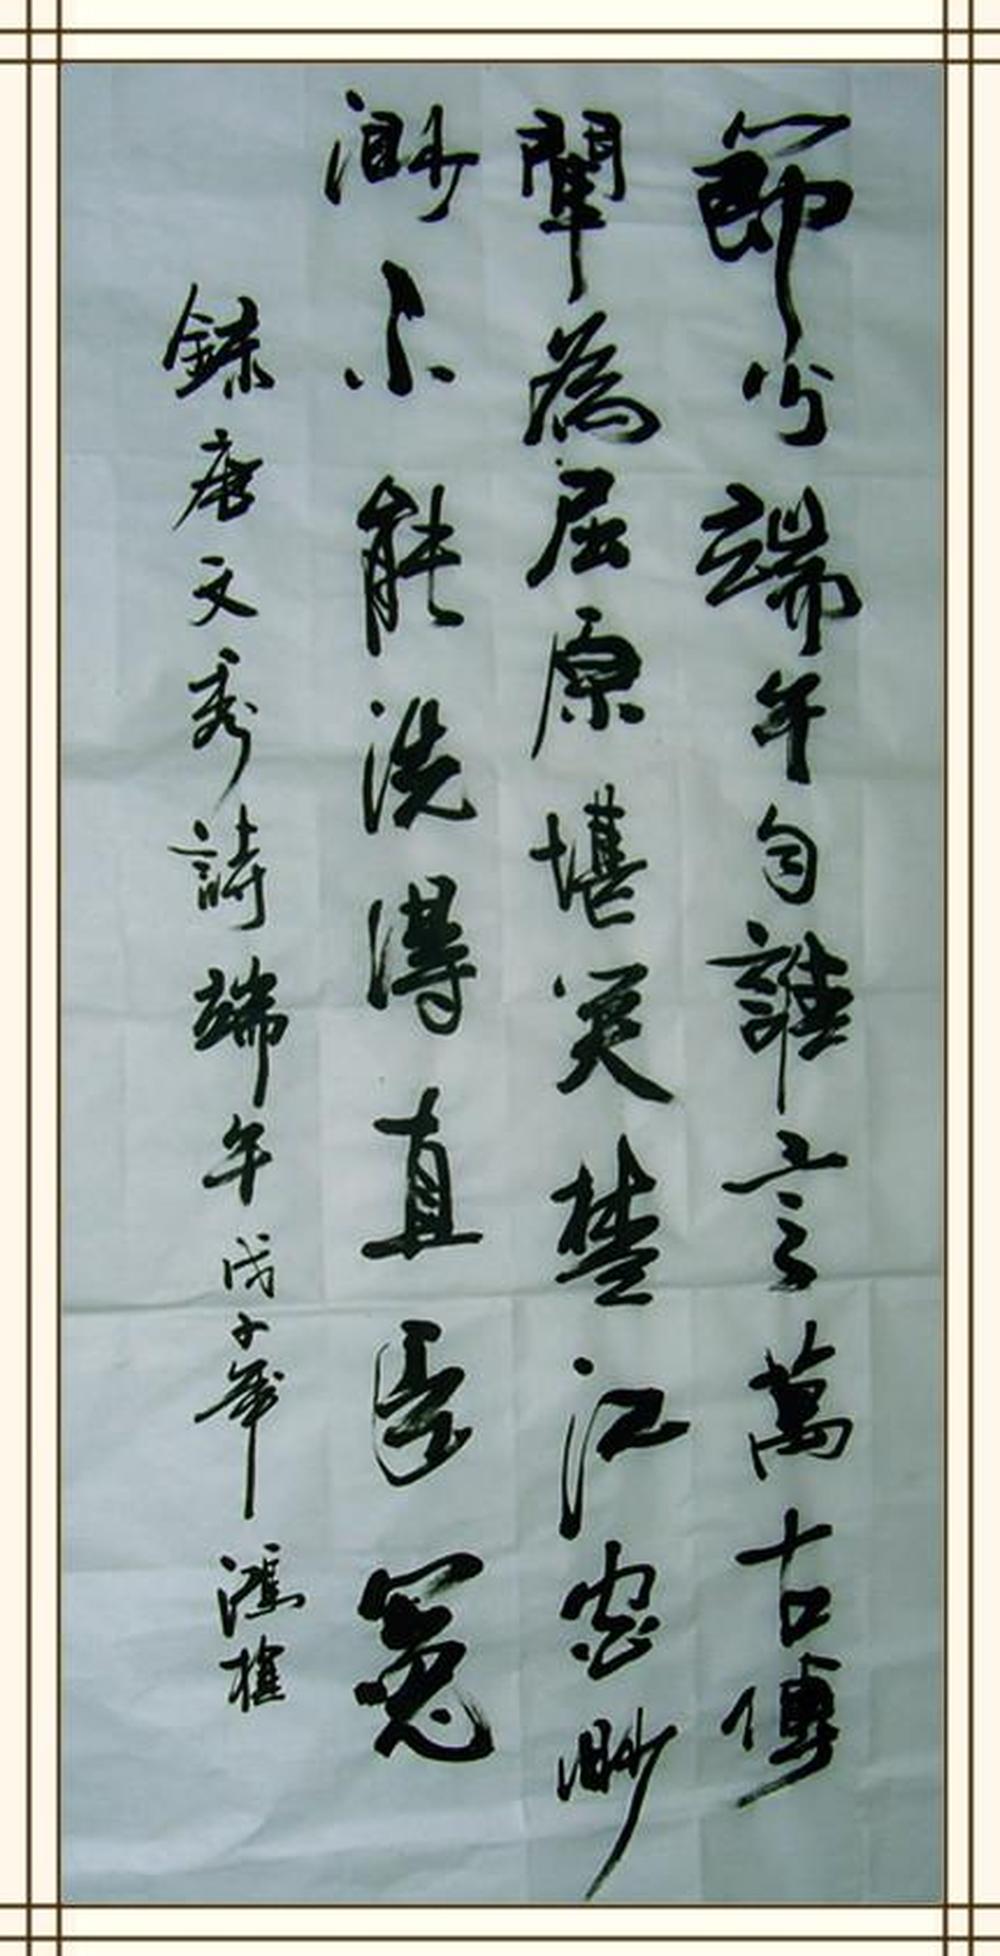 節分端午自誰言萬古傳
聞為屈原堪笑楚江空渺
渺不能洗得直臣冤
錄唐文秀詩端午戊子鴻